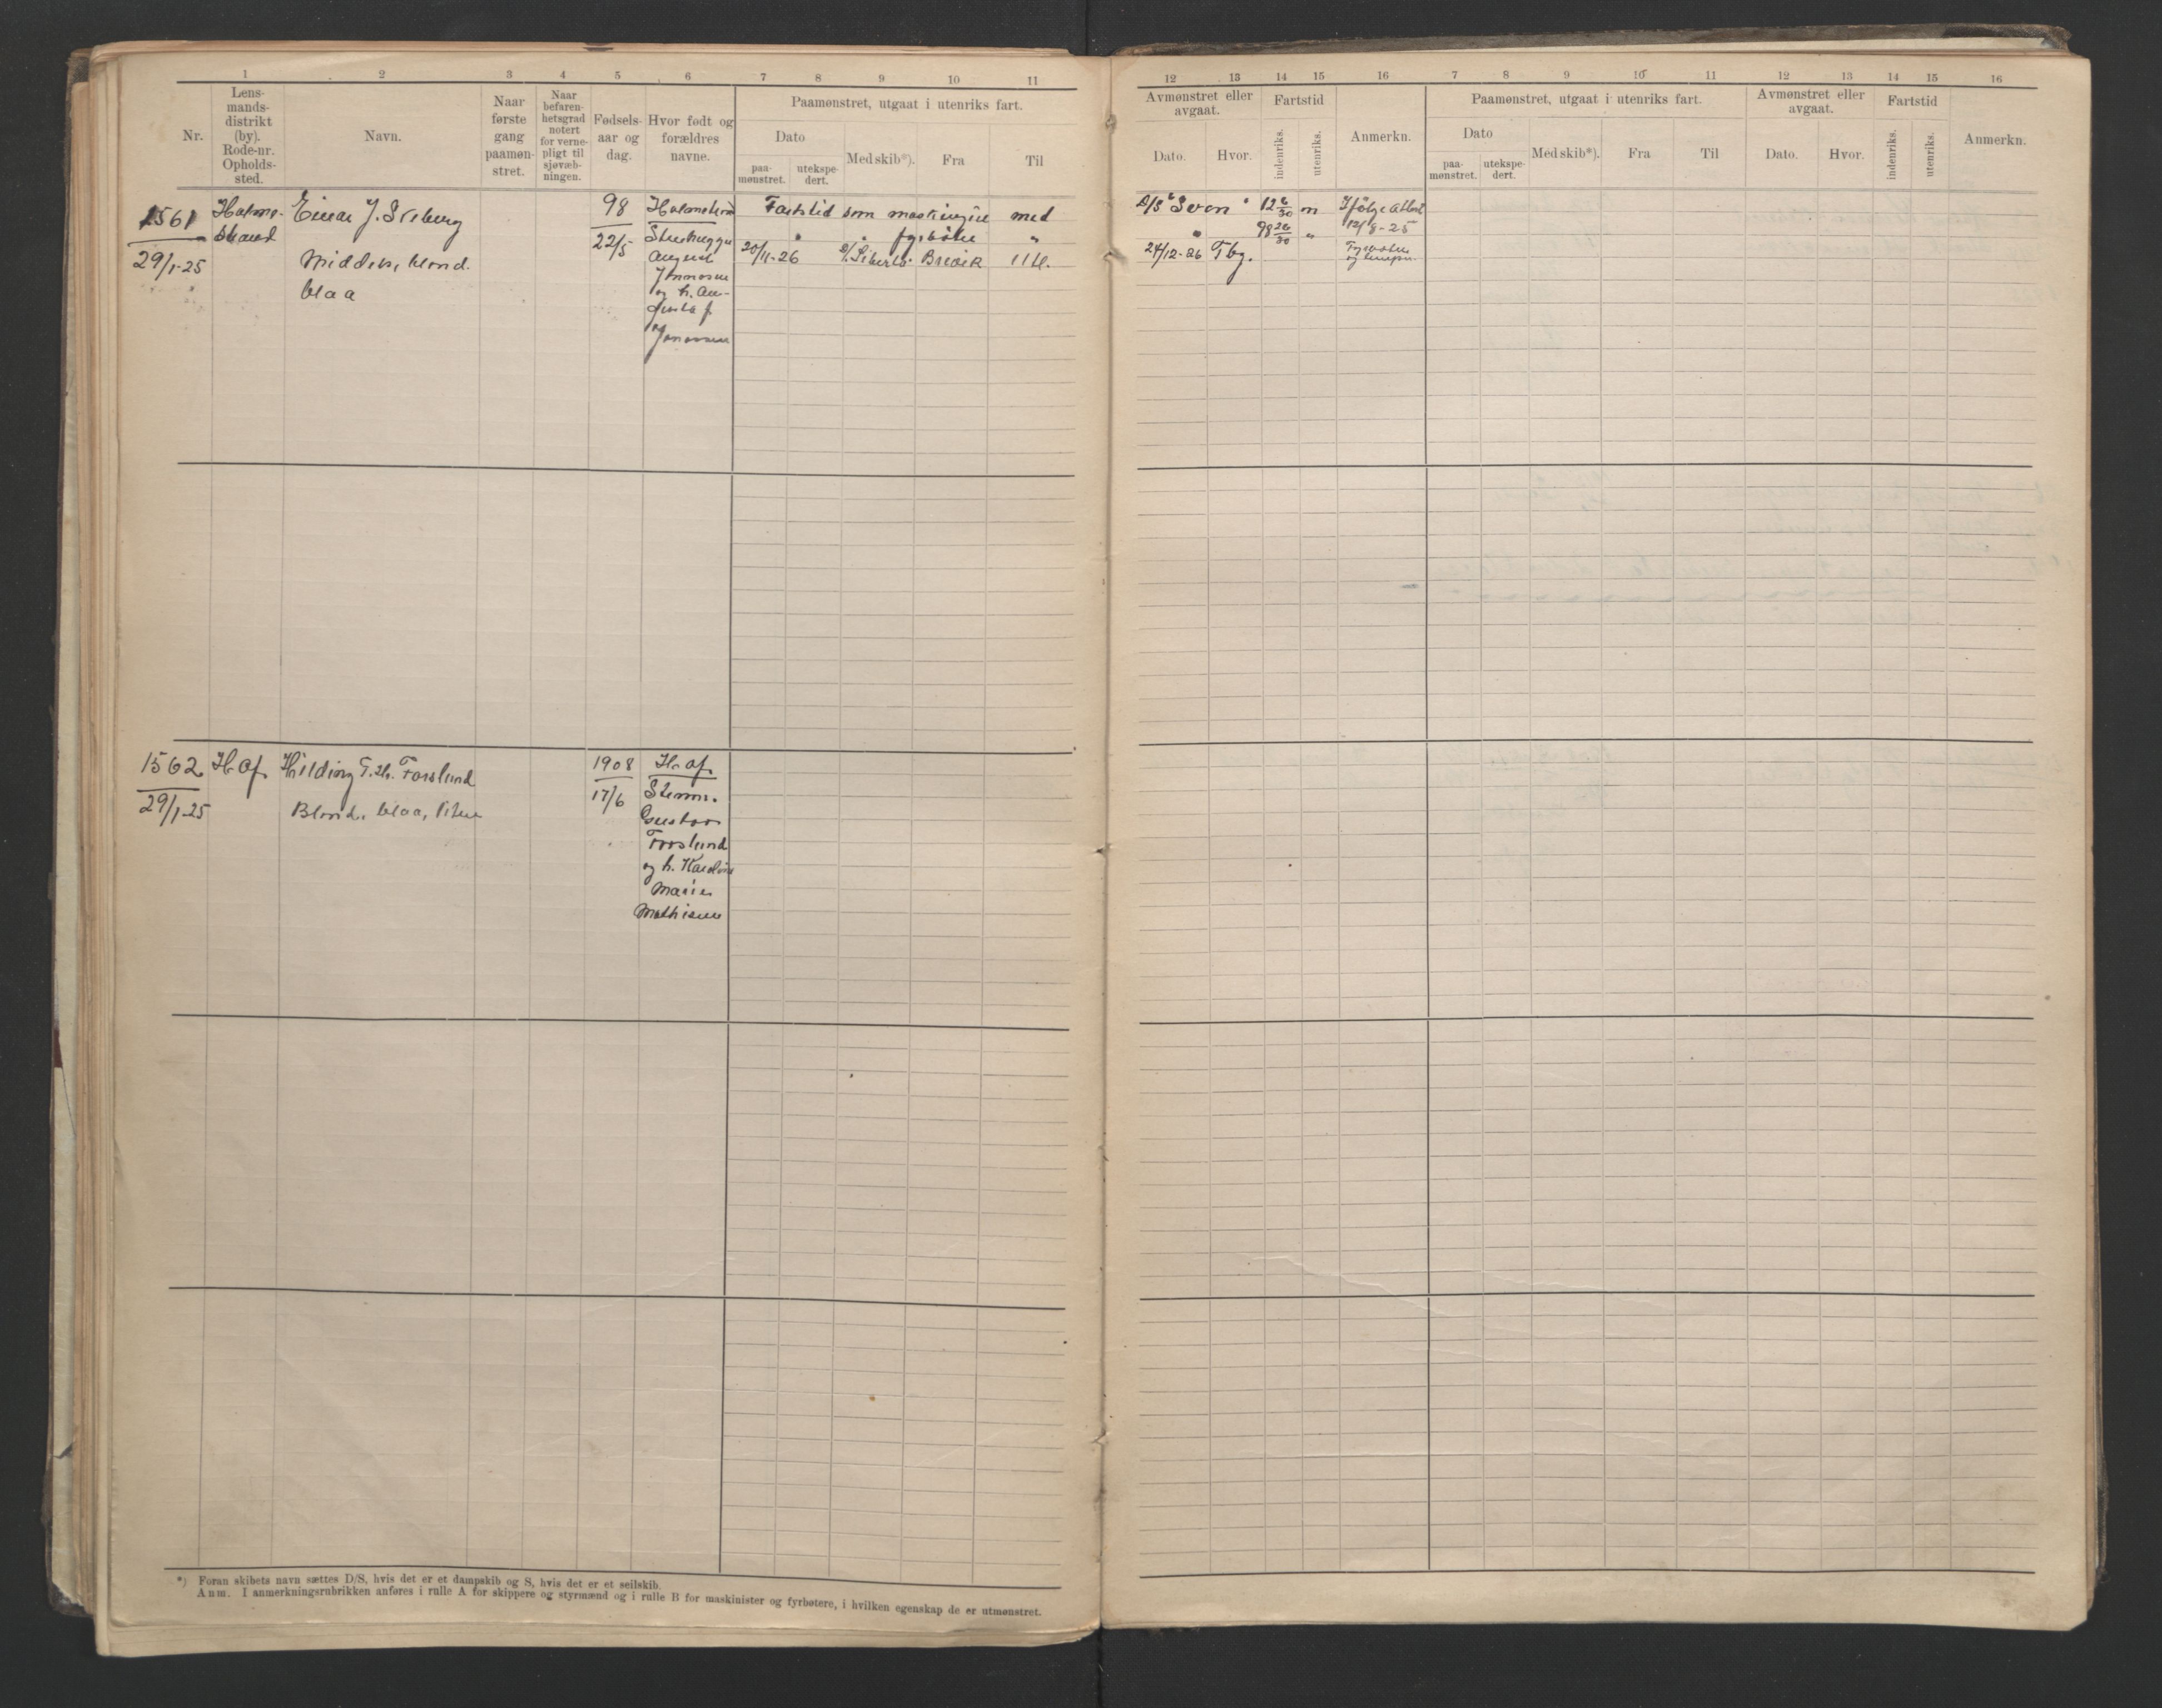 1 2 3 4 5 6 7 8 9 10 11
Nr.
Lens-
mands-
distrikt
(by).
Rode-nr.
Opholds-
sted.
Navn.
Naar
første
gang
paamøn-
stret.
Naar
befaren-
hetsgrad
notert
for verne-
pligt til
sjøvæb-
ningen.
Fødsels-
aar og
dag.
Hvor født og
forældres
navne.
Paamønstret, utgaat i utenriks fart.
Dato
paa-
mønstret.
utekspe-
dert.
Med skib*).
Fra
Til
12 13 14 15 16 7 8 9 10 11 12 13 14 15 16
Avmønstret eller
avgaat.
Dato.
Hvor.
Fartstid
indenriks.
utenriks.
Anmerkn.
Paamønstret, utgaat i utenriks fart.
Dato
paa-
mønstret.
utekspe-
dert.
Med skib*).
Fra
Til
Avmønstret eller
avgaat.
Dato.
Hvor.
Fartstid
indenriks.
utenriks.
Anmerkn.
1561
29/1-25
Holme-
strand
Einar J.
Middels, blond.
blaa
98
22/5
Holmestrand
Stenhugger
August
Jonassen
og h.
Jonassen
Fartstid som med
" " fyrbøter "
20/11-26 Brevik Utl.
D/S "Svan" 12 6/30 m Ifølge attest
" 98 26/30 " 12/8-25
24/12-26 Tbg. Fyrbøter
og
1562
29/1-25
H. Hilding T. Th. Forslund
Blond, blaa, liten
1908
17/6
Stenm.
Gustav
Forslund
og h. Karoline
Marie
Mathisen
*) Foran skibets navn sættes D/S, hvis det er et dampskib og S, hvis det er et seilskib.
Anm. I anmerkningsrubrikken anføres i rulle A for skippere og styrmænd og i rulle B for maskinister og fyrbøtere, i hvilken egenskap de er utmønstret.